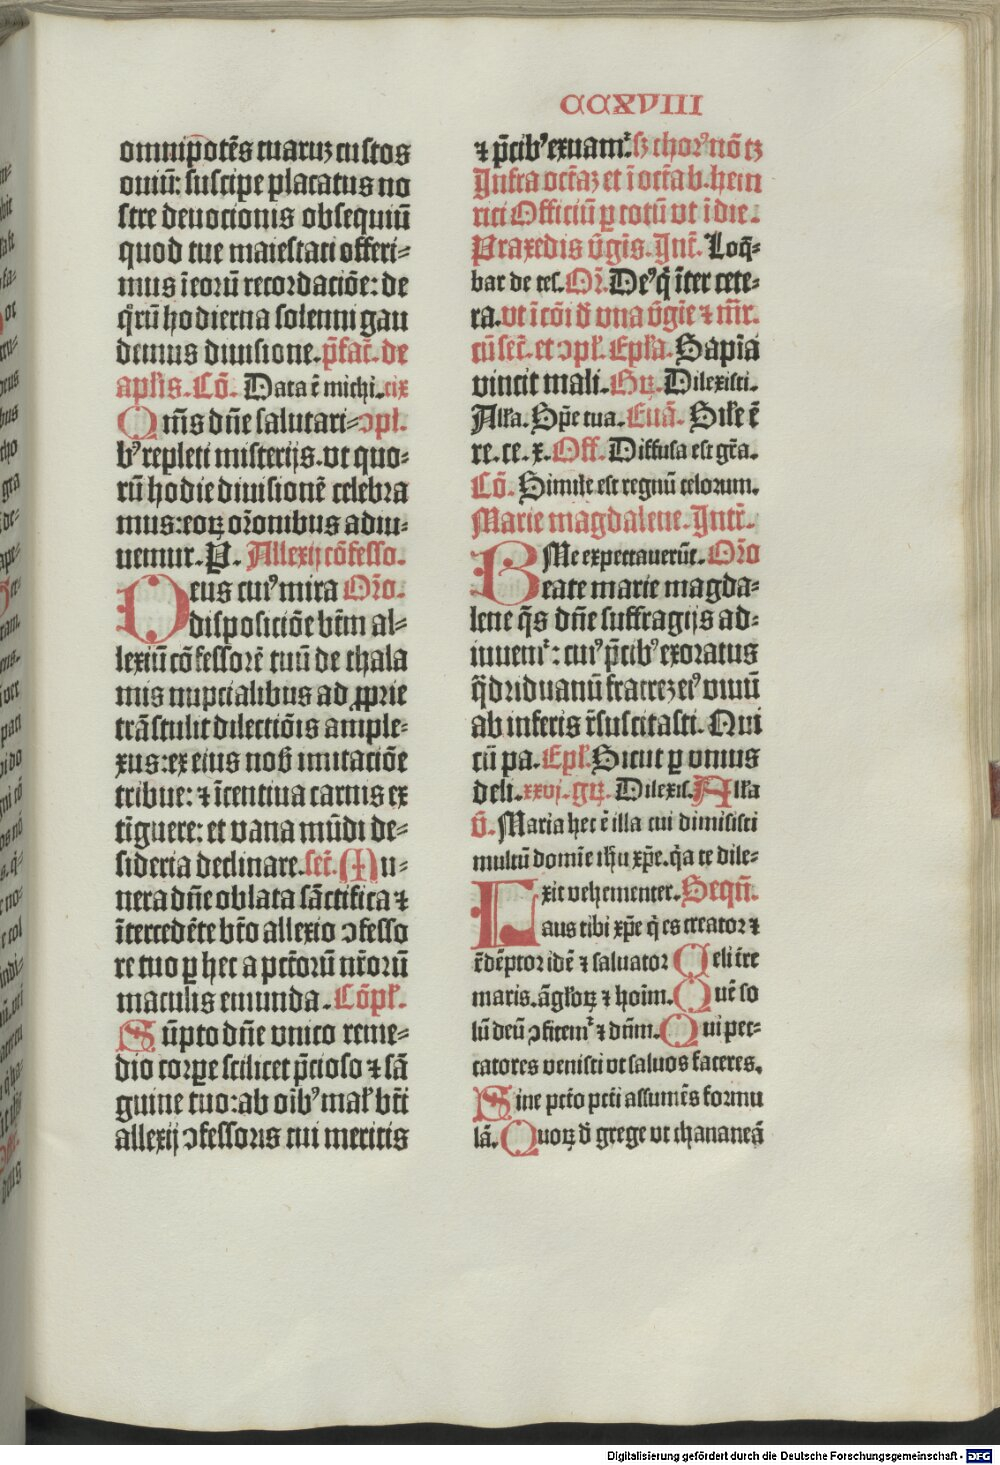 CCXVIII
omnipotẽs tuaruz custos
ouiũ: suscipe placatus no
stre deuocionis obsequiũ
quod tue maiestati offeri⸗
mus ĩeorũ recordatiõe: de
q̃rũ hodierna solenni gau
demus diuisione. p̃fac̃. de
apl̃is. Cõ. Data ẽ michi. cix
Qm̃s dñe salutari⸗ ↄpl.
bꝰ repleti misterijs. vt quo⸗
rũ hodie diuisionẽ celebra
mus: eoꝝ or̃onibus adiu⸗
uemur. P. Allexij cõfesso.
Deus cuiꝰ mira Or̃o.
disposiciõe bt̃m al⸗
lexiũ cõfessorẽ tuũ de thala
mis nupcialibus ad ꝓprie
trãstulit dilectiõis ample⸗
xus: ex eius nob̃ imitatiõe
tribue: ⁊ ĩcentiua carnis ex
tĩguere: et vana mũdi de⸗
sideria declinare. sec̃. Mu⸗
nera dñe oblata sãctifica ⁊
ĩtercedẽte bt̃o allexio ↄfesso
re tuo ꝑ hec a pctõrũ nr̃orũ
maculis emunda. Cõpl̃.
Sũpto dñe vnico reme⸗
dio corpe scilicet p̃cioso ⁊ sã
guine tuo: ab oĩbꝰ mal̃ bt̃i
allexij ↄfessoris tui meritis
⁊ p̃cibꝰ exuamͬ. sꝫ chorꝰ nõ tꝫ
Infra octaꝫ et ĩ octab. hein
rici Officiũ ꝑ totũ vt ĩ die.
Praxedis v̄gĩs. Int̃. Loq̃⸗
bar de tes. Or̃. Deꝰ q̃ ĩter cete⸗
ra. vt ĩ cõi d̃ vna v̄gĩe ⁊ m̃r.
cũ sec̃. et ↄpl̃. Epl̃a. Sapĩa
vincit mali. Gꝝ. Dilexisti.
All̃a. Sp̃e tua. Euã. Sil̃e ẽ
re. ce. x. Off. Diffusa est gr̃a.
Cõ. Simile est regnũ celorum.
Marie magdalene. Intr̃.
ME expectauerũt. Or̃o
Beate marie magda⸗
lene q̃s dñe suffragijs ad⸗
iuuemͬ: cuiꝰ p̃cibꝰ exoratus
q̃driduanũ fratrez eiꝰ viuũ
ab inferis r̃suscitasti. Qui
cũ pa. Epl̃. Sicut ꝑ vnius
deli. xxvj. gꝝ. Dilexis. All̃a
v̄. Maria hec ẽ illa cui dimisisti
multũ domĩe ih̃u xp̃e. q̃a te dile⸗
xit vehementer. Sequẽ.
Laus tibi xp̃e q̃ es creator ⁊
r̃dẽptor idẽ ⁊ saluator Qeli t̃re
maris. ãgl̃oꝝ ⁊ hoĩm. Quẽ so
lũ deũ ↄfitemͬ ⁊ dñm. Qui pec⸗
catores venisti vt saluos faceres.
Sine pctõ pcti assumẽs formu
lã. Quoꝝ d̃ grege vt chananeã
Digitalisierung gefördert durch die Deutsche Forschungsgemeinschaft - DFG